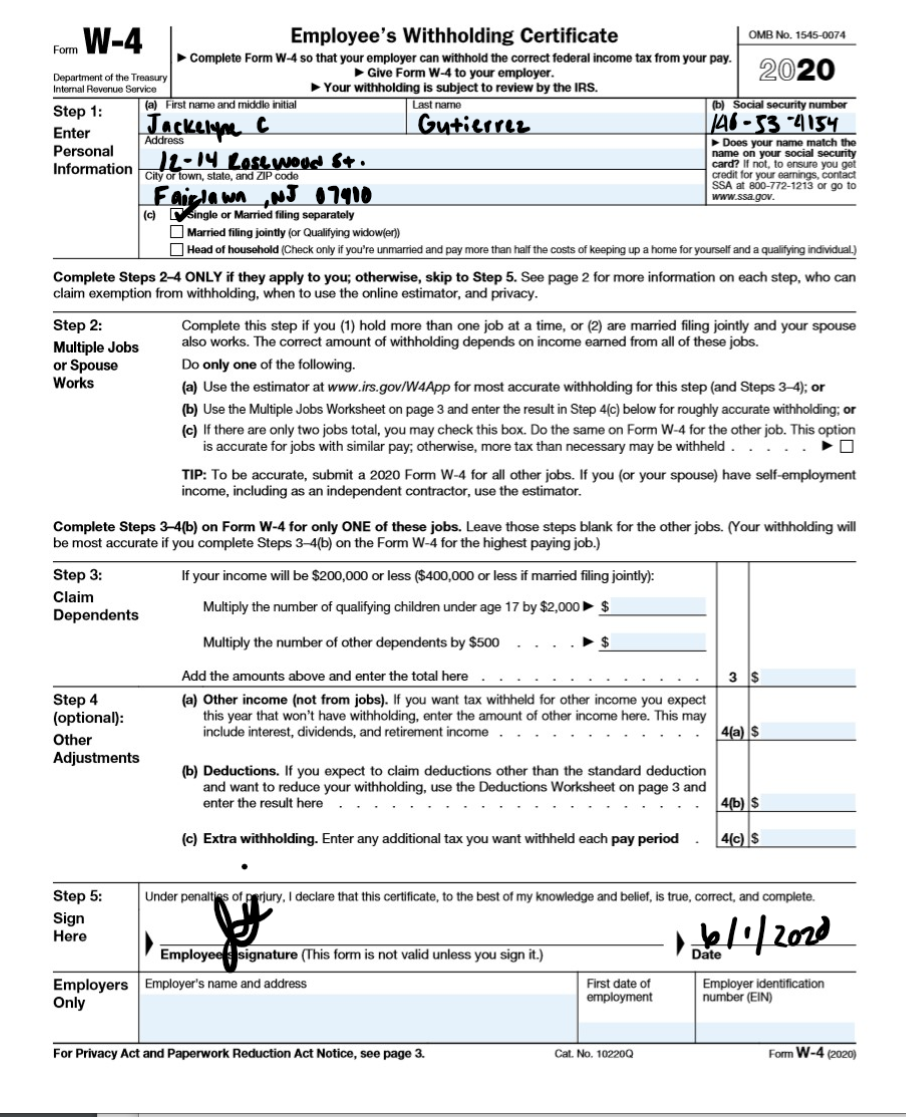 Form W-4
Department of the Treasury
Internal Revenue Service
Employee's Withholding Certificate
▶ Complete Form W-4 so that your employer can withhold the correct federal income tax from your pay.
▶ Give Form W-4 to your employer.
▶ Your withholding is subject to review by the IRS.
OMB No. 1545-0074
2020
Step 1:
Enter
Personal
Information
(a) First name and middle initial
Jackelyne C
Last name
Gutierrez
(b) Social security number
Address
12-14 Rosewood St.
City or town, state, and ZIP code
Fairlawn, NJ 07410
▶ Does your name match the
name on your social security
card? If not, to ensure you get
credit for your earnings, contact
SSA at 800-772-1213 or go to
www.ssa.gov.
(c) Single or Married filing separately
Married filing jointly (or Qualifying widow(er))
Head of household (Check only if you're unmarried and pay more than half the costs of keeping up a home for yourself and a qualifying individual.)
Complete Steps 2–4 ONLY if they apply to you; otherwise, skip to Step 5. See page 2 for more information on each step, who can
claim exemption from withholding, when to use the online estimator, and privacy.
Step 2:
Multiple Jobs
or Spouse
Works
Complete this step if you (1) hold more than one job at a time, or (2) are married filing jointly and your spouse
also works. The correct amount of withholding depends on income earned from all of these jobs.
Do only one of the following.
(a) Use the estimator at www.irs.gov/W4App for most accurate withholding for this step (and Steps 3–4); or
(b) Use the Multiple Jobs Worksheet on page 3 and enter the result in Step 4(c) below for roughly accurate withholding; or
(c) If there are only two jobs total, you may check this box. Do the same on Form W-4 for the other job. This option
is accurate for jobs with similar pay; otherwise, more tax than necessary may be withheld . . . . . ▶
TIP: To be accurate, submit a 2020 Form W-4 for all other jobs. If you (or your spouse) have self-employment
income, including as an independent contractor, use the estimator.
Complete Steps 3–4(b) on Form W-4 for only ONE of these jobs. Leave those steps blank for the other jobs. (Your withholding will
be most accurate if you complete Steps 3–4(b) on the Form W-4 for the highest paying job.)
Step 3:
Claim
Dependents
If your income will be $200,000 or less ($400,000 or less if married filing jointly):
Multiply the number of qualifying children under age 17 by $2,000 ▶ $
Multiply the number of other dependents by $500 . . . . ▶ $
Add the amounts above and enter the total here . . . . . . . . . . . . . 3 $
Step 4
(optional):
Other
Adjustments
(a) Other income (not from jobs). If you want tax withheld for other income you expect
this year that won't have withholding, enter the amount of other income here. This may
include interest, dividends, and retirement income . . . . . . . . . . . . 4(a) $
(b) Deductions. If you expect to claim deductions other than the standard deduction
and want to reduce your withholding, use the Deductions Worksheet on page 3 and
enter the result here . . . . . . . . . . . . . . . . . . . . . 4(b) $
(c) Extra withholding. Enter any additional tax you want withheld each pay period . 4(c) $
Step 5:
Sign
Here
Under penalties of perjury, I declare that this certificate, to the best of my knowledge and belief, is true, correct, and complete.
6/1/2020
Employee's signature (This form is not valid unless you sign it.)
Date
Employers
Only
Employer's name and address
First date of
employment
Employer identification
number (EIN)
For Privacy Act and Paperwork Reduction Act Notice, see page 3.
Cat. No. 10220Q
Form W-4 (2020)